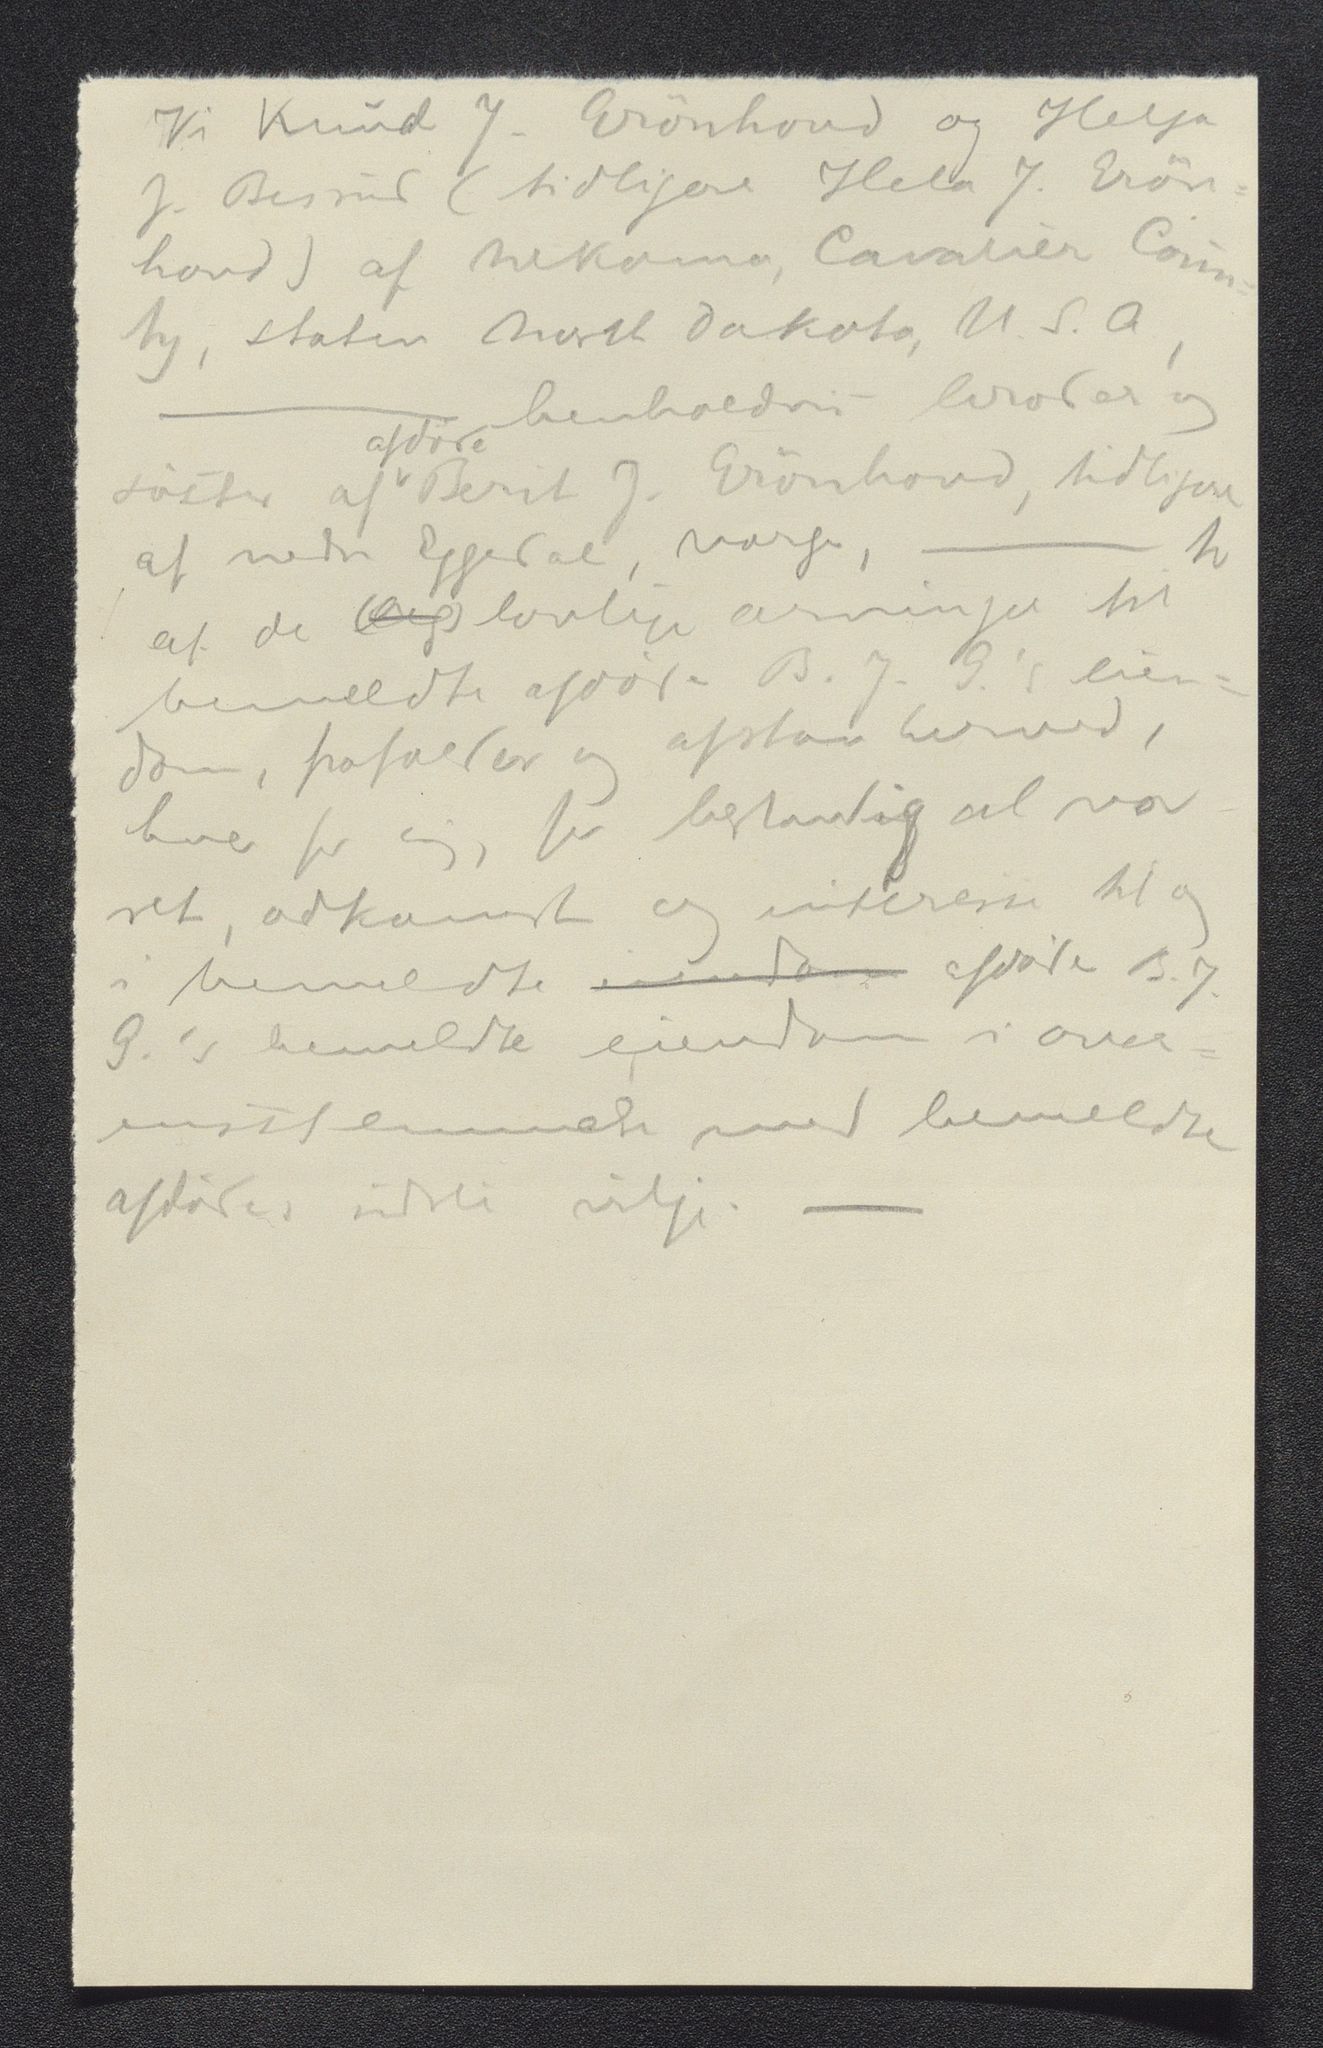 Vi Knud J. Grönhovd og Helga
J. Besrud (tidligere Helga J. Grön=
hovd) af Nekoma, Cavalier Coun=
ty, staten North Dakota, U. S. A,
——— henholdsvis broder og
afdöde
söster af Berit J. Grönhovd, tidligere
af nedre Eggedal, Norge, ——— to
af de lovlige arvinger til
bemeldte afdöde B. J. G.'s eien=
dom, frafalder og afstaar herved,
hver for sig, for bestandig al vor
ret, adkomst og interesse til og
i bemeldte eiendom afdöde B. J.
G.'s bemeldte eiendom i over=
ensstemmelse med bemeldte
afdödes sidste vilje. —